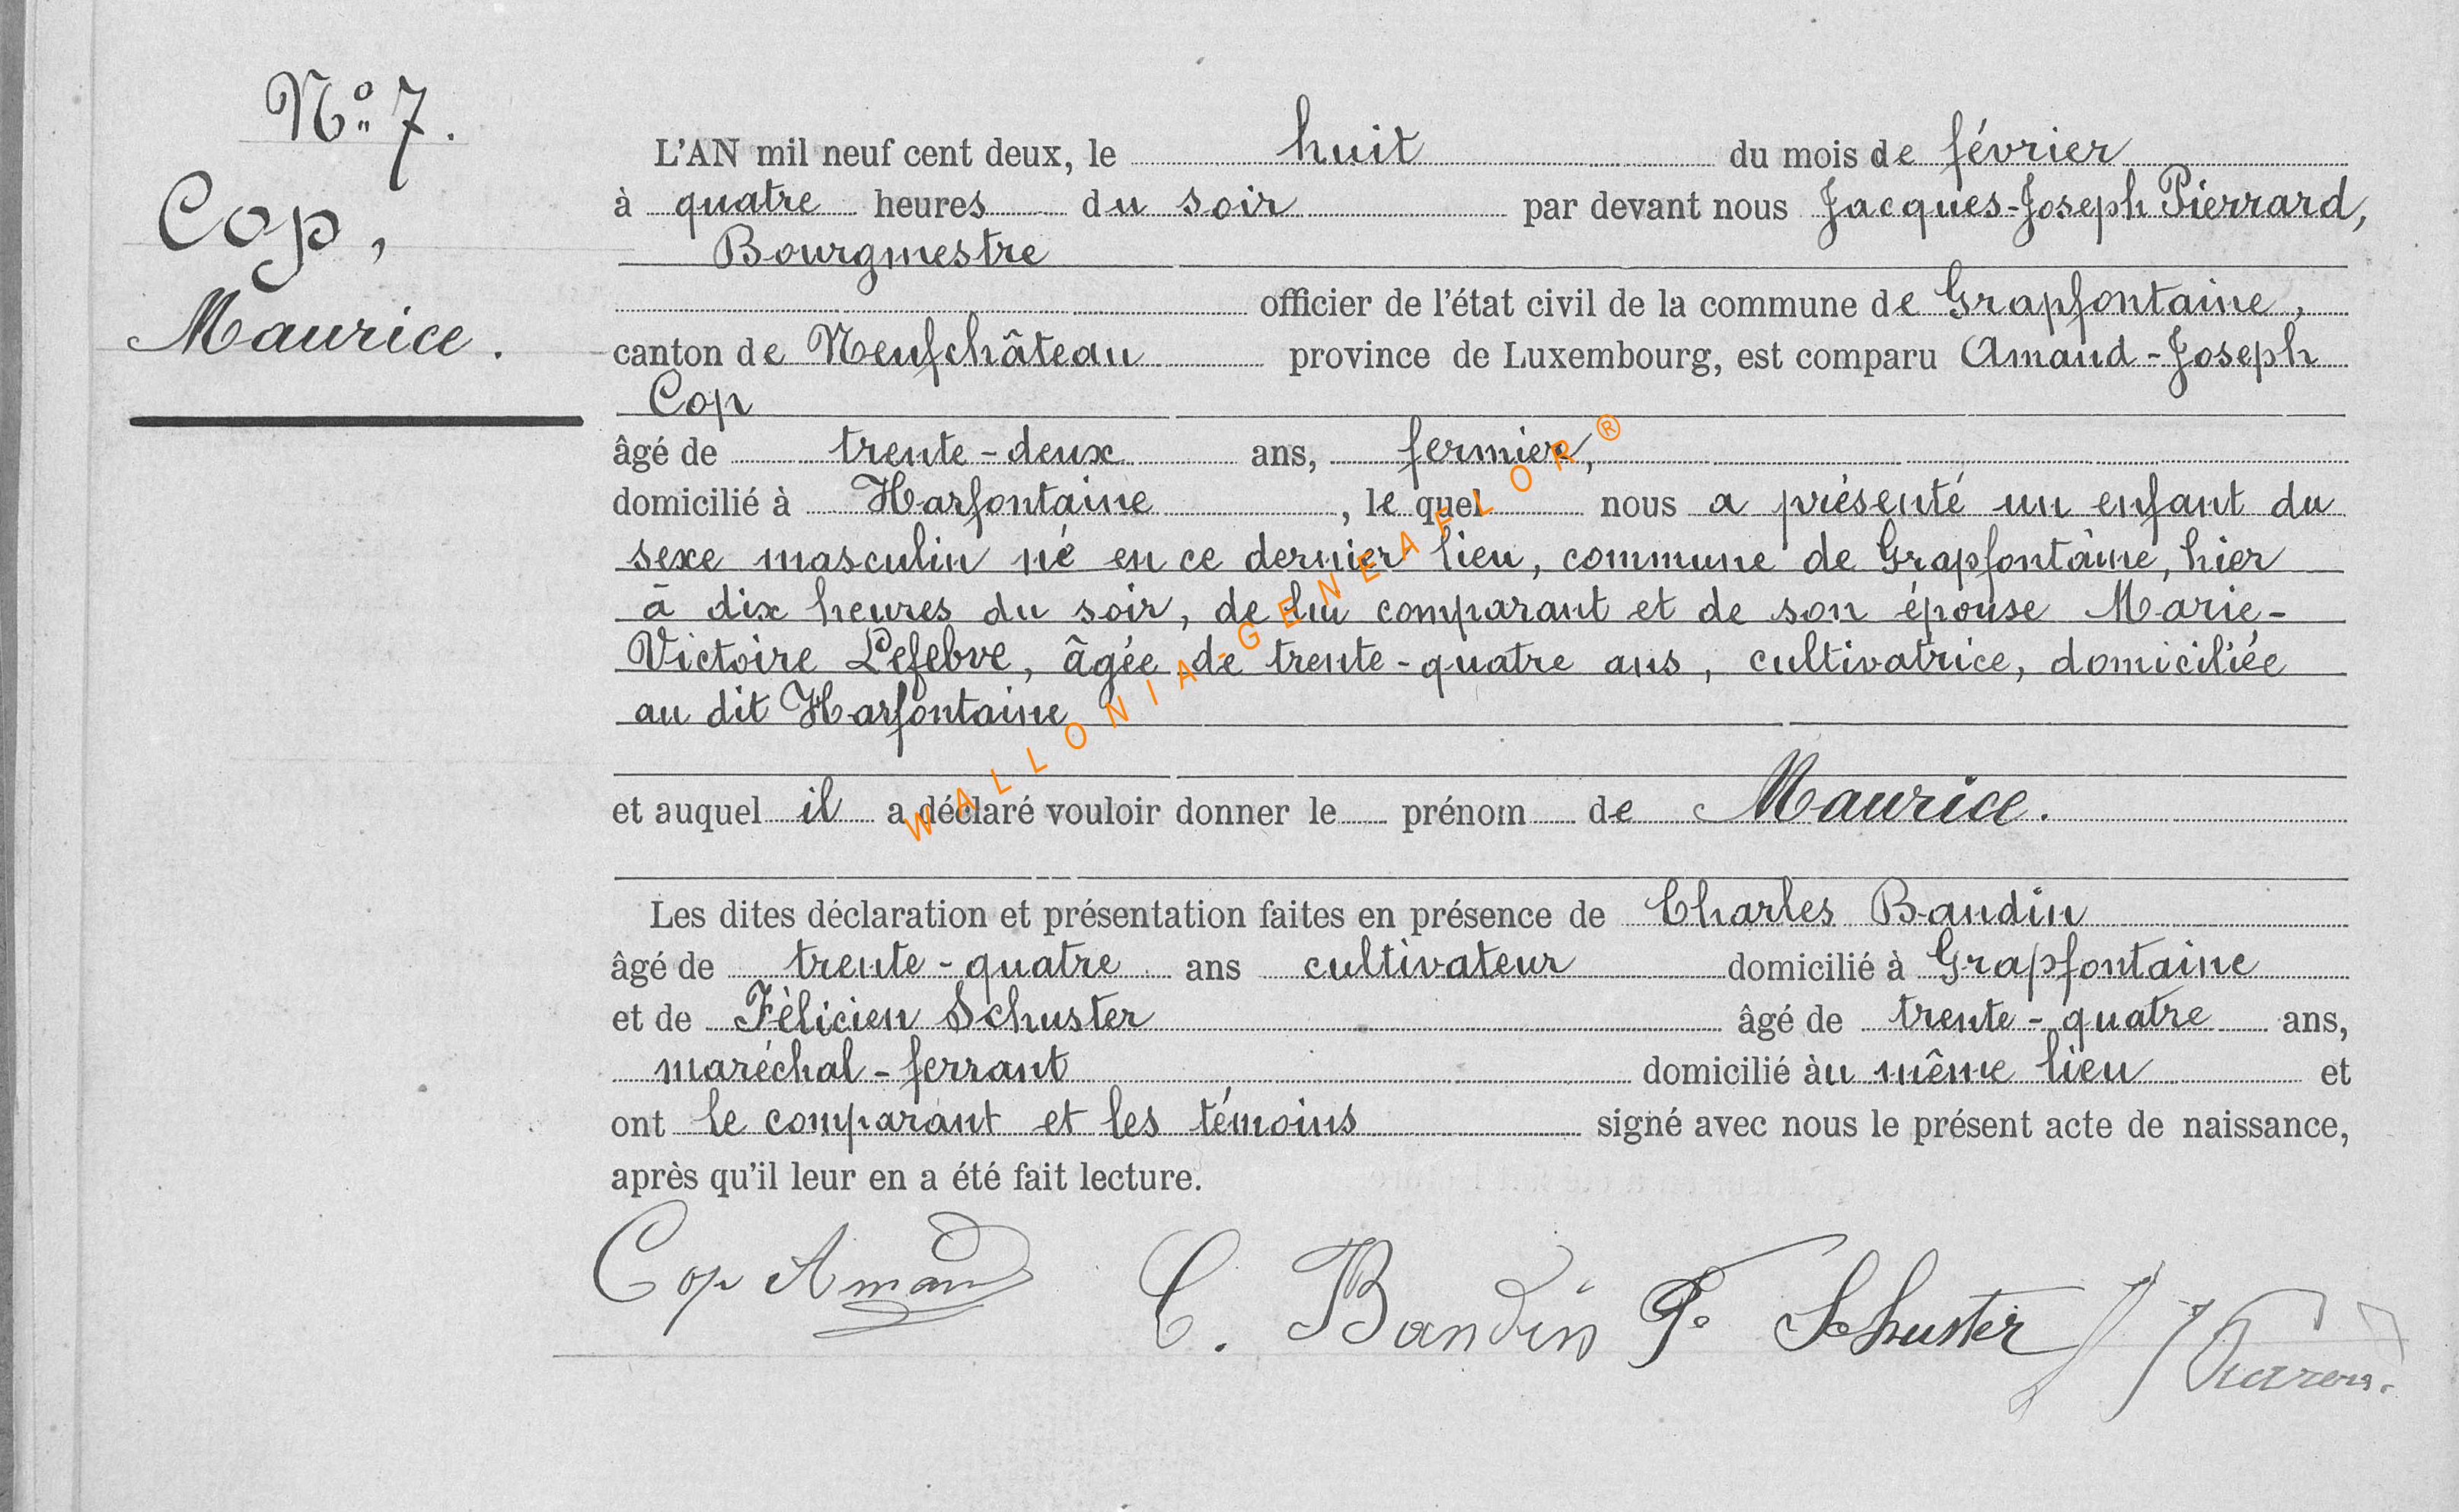 N° 7.
Cop,
Maurice.
L'AN mil neuf cent deux, le huit du mois de février
à quatre heures du soir par devant nous Jacques-Joseph Pierrard,
Bourgmestre
officier de l'état civil de la commune de Grapfontaine,
canton de Neufchâteau province de Luxembourg, est comparu Amand-Joseph
Cop
âgé de trente-deux ans, fermier,
domicilié à Harfontaine, le quel nous a présenté un enfant du
sexe masculin né en ce dernier lieu, commune de Grapfontaine, hier
à dix heures du soir, de lui comparant et de son épouse Marie-
Victoire Lefebvre, âgée de trente-quatre ans, cultivatrice, domiciliée
au dit Harfontaine
et auquel il a déclaré vouloir donner le prénom de Maurice.
Les dites déclaration et présentation faites en présence de Charles Baudin
âgé de trente-quatre ans cultivateur domicilié à Grapfontaine
et de Félicien Schuster âgé de trente-quatre ans,
maréchal-ferrant domicilié àu même lieu et
ont le comparant et les témoins signé avec nous le présent acte de naissance,
après qu'il leur en a été fait lecture.
Cop Amand C. Baudin F. Schuster
WALLONIA-GENEAFLOR®